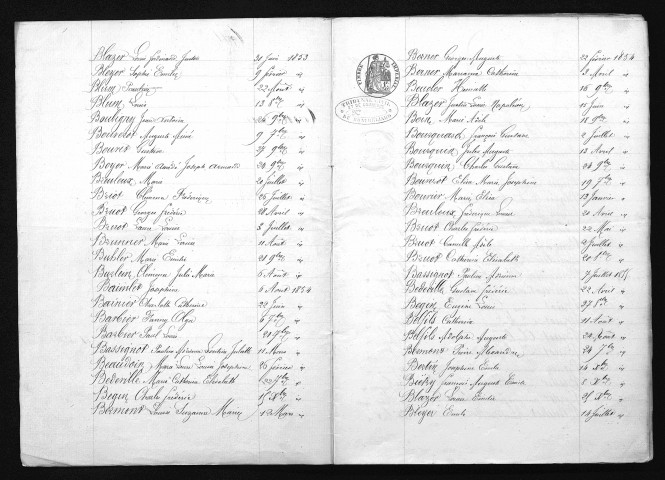 Blazer Louis Ferdinand Justin 31 Juin 1853
Bleyer Sophie Emilie 9 février "
Blum 23 Août "
Blum Louis 13 8bre "
Bouligny Jean Antoine 26 9bre "
Bourelot Auguste Aimé 9 7bre "
Bouvot 29 9bre "
Boyer Marie Joseph 24 9bre "
Breuleux Marie 20 Juillet "
Briot Clémence Frédérique 25 Juillet "
Bruot Georges Frédéric 18 Avril "
Bruot Laure Louise 3 Juillet "
Brunner Marie Louise 11 Août "
Buhler Marie Emilie 21 9bre "
Burlein Clémence Julie Marie 6 Août "
Bainier Joséphine 6 Août 1854
Bainier Charlotte Catherine 22 Juin "
Barbier Fanny Olga 6 7bre "
Barbier Paul Louis 20 7bre "
Bassignot Juliette 11 Mars "
Beaudoin Marie Laure Louise Joséphine 25 février "
Bedeville Marie Catherine Elisabeth 22 7bre "
Begen Charles Frédéric 15 Xbre "
Bémont Louise Suzanne Marie 12 Mars "
TIMBRE IMPERIAL
TRIBUNAL CIVIL
DE MONTBELIARD
Berner Georges Auguste 22 février 1854
Berner Marianne Catherine 3 Avril "
Beucler 16 9bre "
Blazer Justin Louis Napoléon 15 Juin "
Boin Marie Adèle 18 9bre "
Bourquard François Constant 2 Juillet "
Bourquin Jules Auguste 12 Avril "
Bourquin Charles Gustave 24 9bre "
Bouverot Elise Marie Joséphine 19 7bre "
Bouvier Marie Elise 13 Janvier "
Breuleux Frédérique Louise 21 Avril "
Bruot Charles Frédéric 22 Mai "
Bruot Camille Adèle 9 Juillet "
Bruot Catherine Elisabeth 20 8bre "
Bassignot Pauline 7 Juillet 1855
Bedeville Gustave Frédéric 22 Avril "
Begen Eugène Louis 27 8bre "
Belfils Catherine 11 Août "
Belfils Adolphe Auguste 22 Août "
Bémont Pierre Alexandre 24 7bre "
Bertin Joséphine Emilie 14 Xbre "
Betry François Auguste Emile 8 Xbre "
Blazer Louise Emilie 25 Xbre "
Bleyer Emile 14 Juillet "